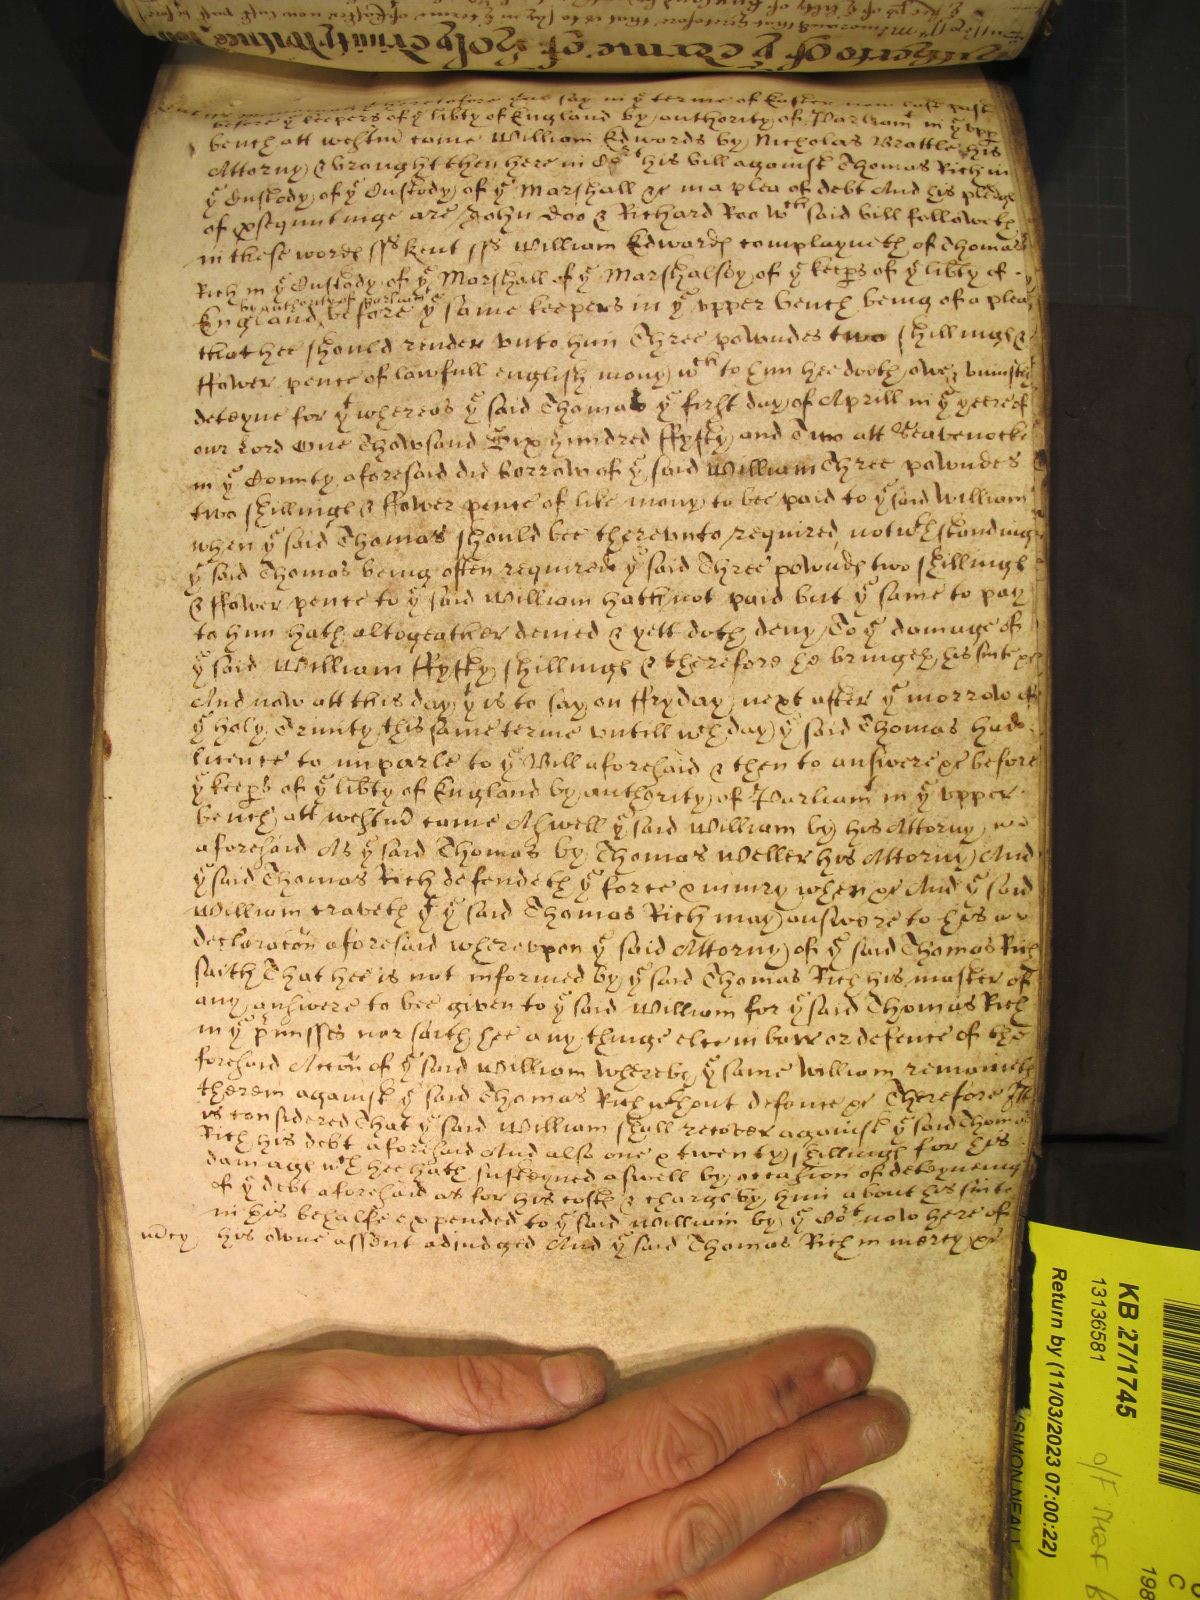 hitherto of ye terme of Holy Trinity Witnes
heretofore that is to say in ye terme of Easter now last past
before ye keepers of ye libty of England by authority of Parliamt in ye upp
bench att westmr came William Edwards by Nicholas Brattle his
Attorny & brought then here in Cort his bill against Thomas Rich in
ye Custody of ye Custody of ye Marshall &c in a plea of debt And his pledge
of psequutinge are John Doo & Richard Roo wch said bill followeth
in these words ss Kent ss William Edwards complayneth of Thomas
Rich in ye Custody of ye Marshall of ye Marshalsey of ye keeps of ye libty of
by authority of Parliamt
England before ye same keepers in ye upper bench being of a plea
that hee should render unto him Three powndes two shillings &
ffower pence of lawfull english mony wch to him hee doeth owe & uniustly
deteyne for yt whereas ye said Thomas ye first day of Aprill in ye yeere of
our Lord One Thowsand Six hundred ffyfty and Two att Seavenocke
in ye County aforesaid did borrow of ye said William Three powndes
two shillings & ffower pence of like mony to bee paid to ye said William
when ye said Thomas should bee thereunto required notwthstanding
ye said Thomas being often required ye said Three pownds two shillings
& ffower pence to ye said William hath not paid but ye same to pay
to him hath altogeather denied & yett doth deny To ye damage of
ye said William ffyfty shillings & therefore he bringeth his suite &c
And now att this day yt is to say on ffryday next after ye morrow of
ye holy Trinity this same terme untill wch day ye said Thomas had
licence to imparle to ye Bill aforesaid & then to answere &c before
ye keeps of ye libty of England by authority of Parliamt in ye upper
bench att westmr came Aswell ye said William by his Attorny
aforesaid As ye said Thomas by Thomas Weller his Attorny And
ye said Thomas Rich defendeth ye force & iniury when &c And ye said
William craveth yt ye said Thomas Rich may answere to his
declaracon aforesaid whereupon ye said Attorny of ye said Thomas Rich
saith That hee is not informed by ye said Thomas Rich his master of
any answere to bee given to ye said William for ye said Thomas Rich
in ye pmisses nor saith hee any thinge else in barr or defence of the
foresaid Accon of ye said William whereby ye same William remaineth
therein against ye said Thomas Rich wthout defence &c Therefore Itt
is considered That ye said William shall recover against ye said Thomas
Rich his debt aforesaid And also one & twenty shillings for his
damage wch hee hath susteyned aswell by occasion of deteyneing
of ye debt aforesaid as for his costs & charges by him about his suite
in his behalfe expended to ye said William by ye Cort now here of
mcy his owne assent adjudged And ye said Thomas Rich in mercy &c
KB 27/1745
13136581
Return by (11/03/2023 07:00:22)
SIMON NEAL
198
C